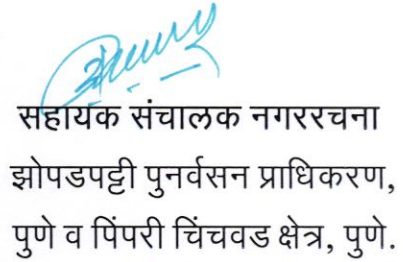 सहायक संचालक नगररचना
झोपडपट्टी पुनर्वसन प्राधिकरण,
पुणे व पिंपरी चिंचवड क्षेत्र, पुणे.